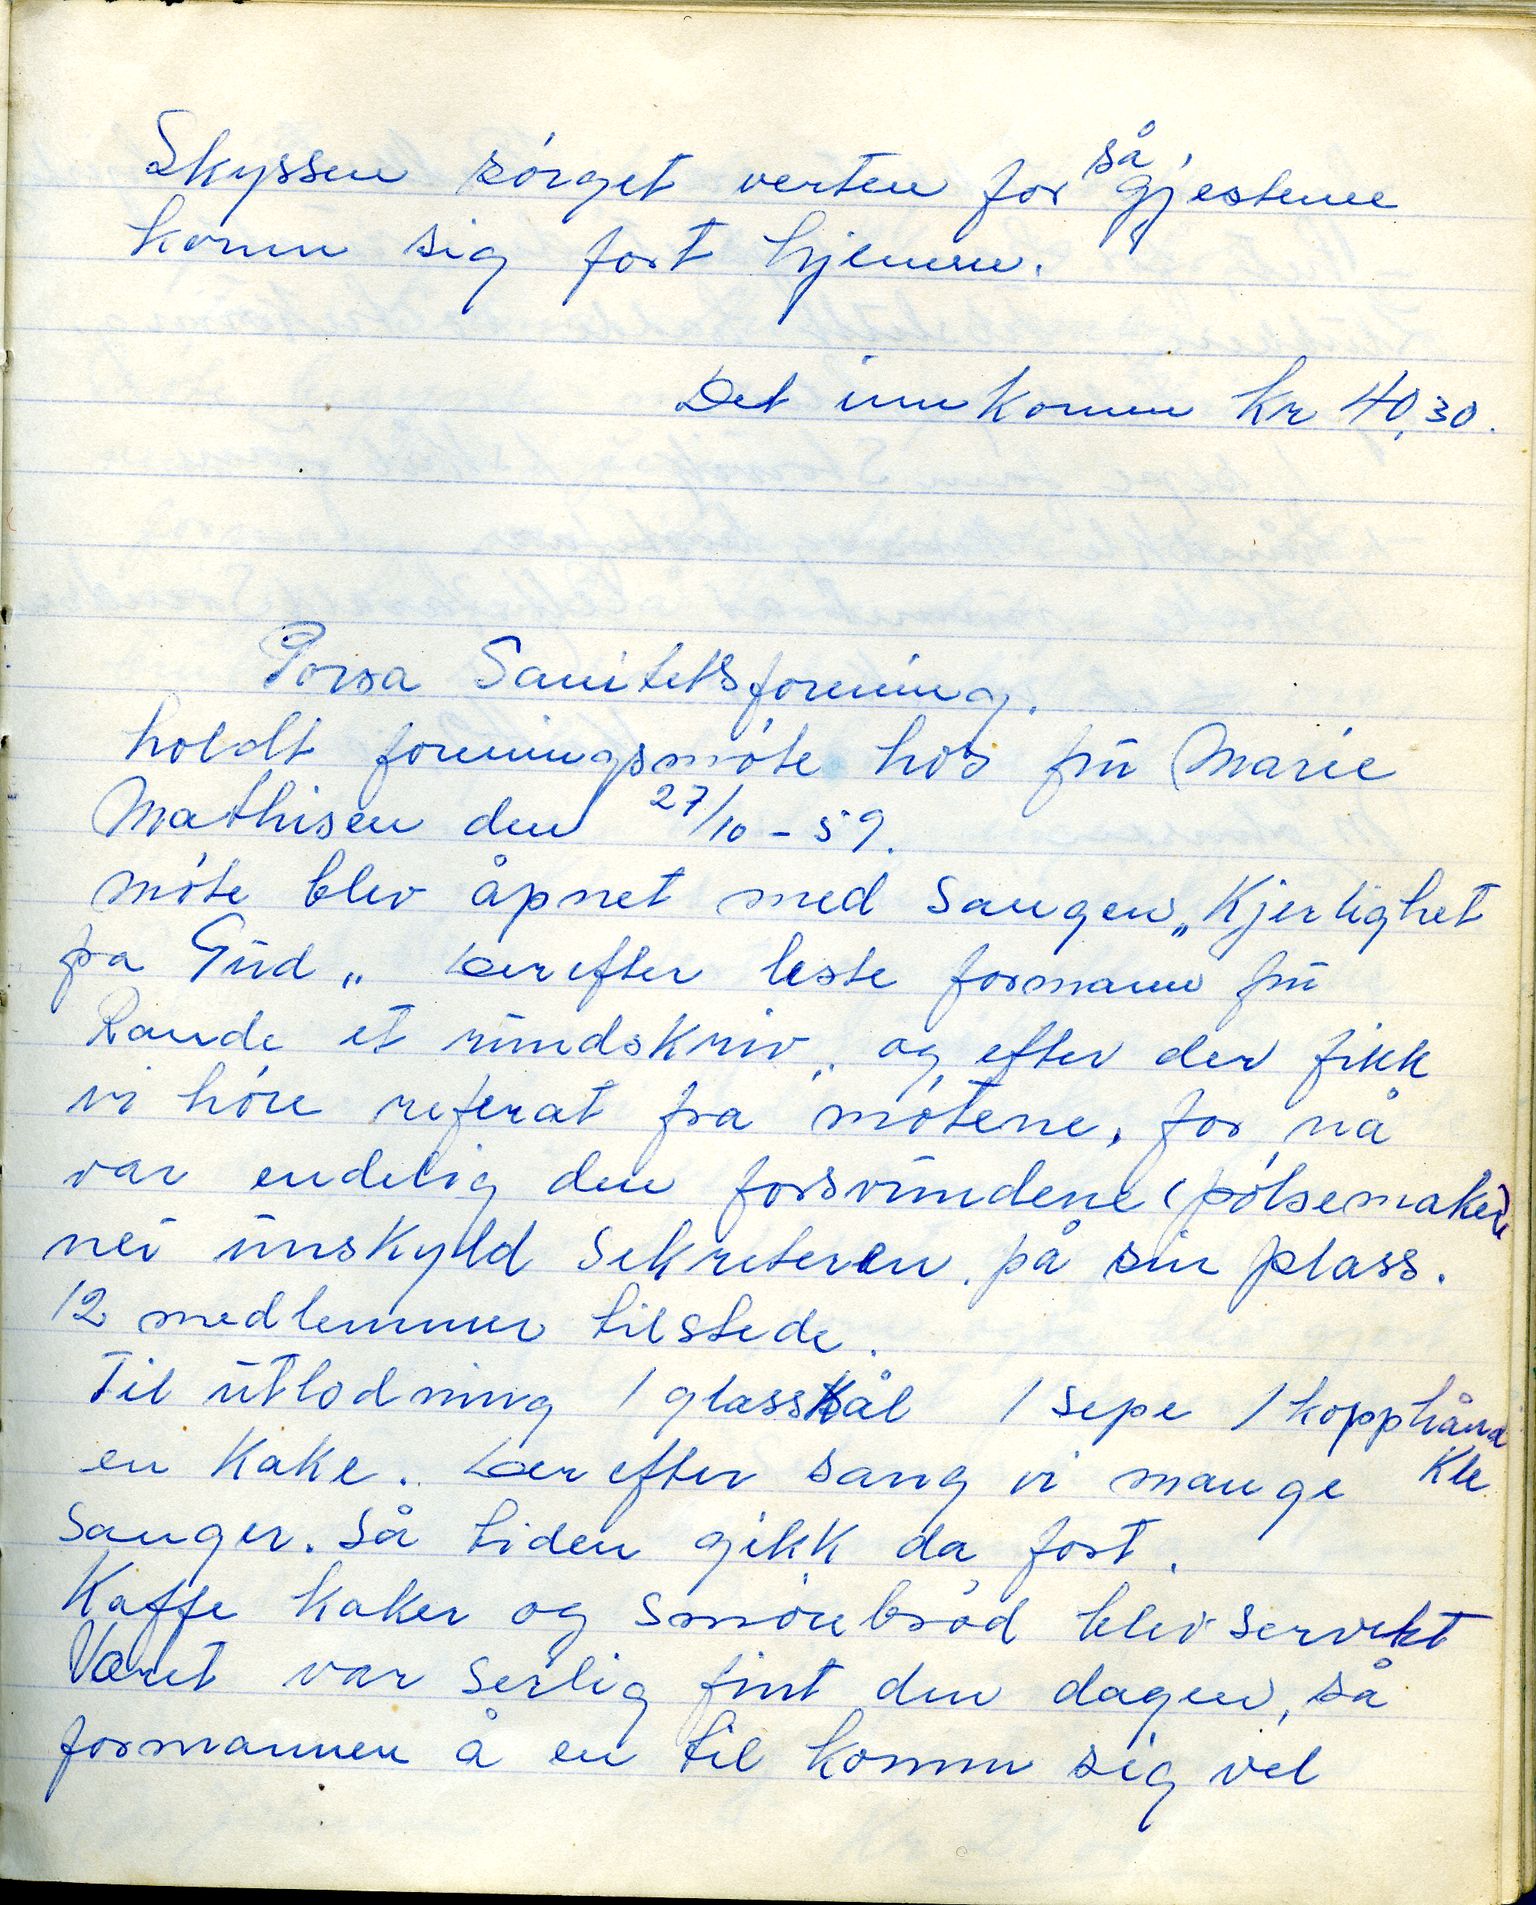 Skyssen sørget verten for så gjestene
komm sig fort hjemm.
Det innkomm kr 40,30.
Porsa Sanitetsforening.
holdt foreningsmøte hos frü Marie
Mathisen den 27/10 - 59.
møte blev åpnet med sangen „Kjerlighet
fra Gŭd„ Derefter leste formann frŭ
Rande et rŭndskriv„ og efter der fikk
vi høre referat fra møtene, for nå
var endelig den forsvŭndene (pølsemakere)
nei ŭnskyld sekreteren på sin plass.
12 medlemmer tilstede.
Til ŭtlodning 1 glasskål 1 sepe 1 kopphånd
kle
en kake. Derefter sang vi mange
sanger. så tiden gikk da fort.
Kaffe kaker og smørebrød blev servert
Været var serlig fint den dagen, så
formannen å en til komm sig vel